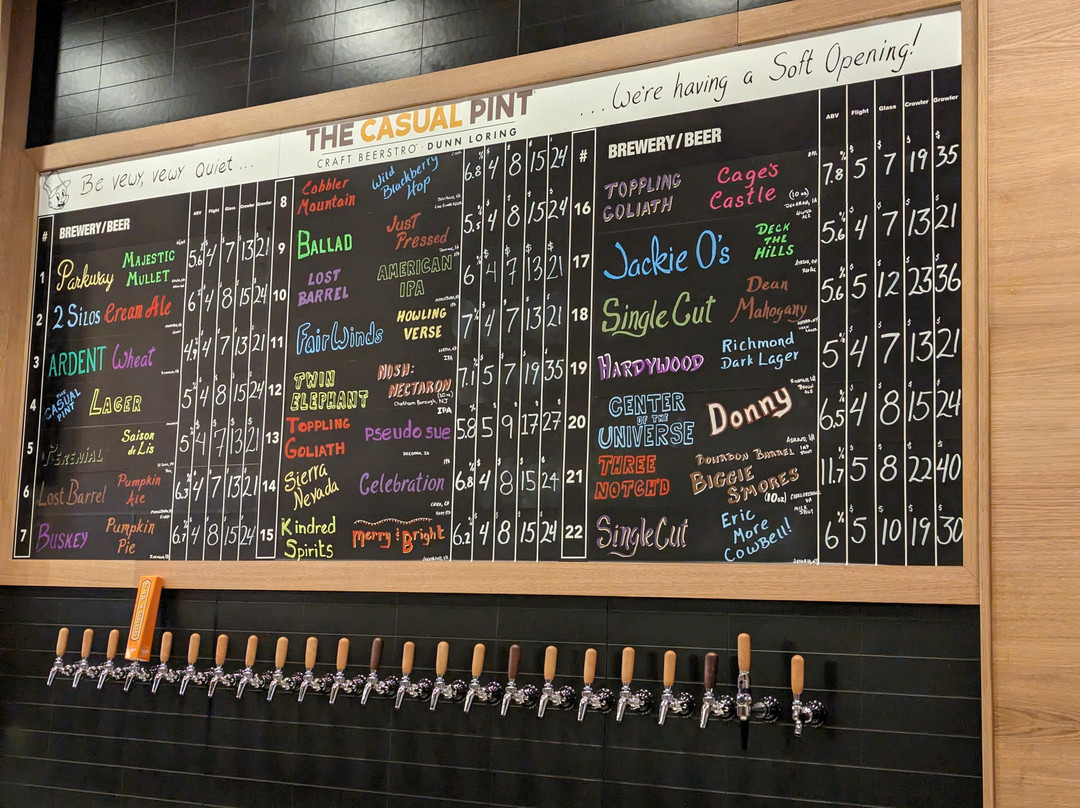 Be vewy, vewy Quiet...
THE CASUAL PINT
CRAFT BEERSTRO DUNN LORING
...We're having a Soft Opening!
# BREWERY/BEER ABV Flight Glass Crowler Growler
1 Parkway Majestic Mullet 5.6% $4 $7 $13 $21
2 2 Silos Cream Ale 6% $4 $8 $15 $24
3 ARDENT Wheat 4.9% $4 $7 $13 $21
4 THE CASUAL PINT LAGER 5% $4 $8 $15 $24
5 Perenial Saison de Lis 5% $4 $7 $13 $21
6 Lost Barrel Pumpkin Ale 6.3% $4 $7 $13 $21
7 BUSKEY Pumpkin Pie 6.7% $4 $8 $15 $24
8 Cobbler Mountain Wild Blackberry Hop 6.8% $4 $8 $15 $24
9 BALLAD Just Pressed 5.5% $4 $8 $15 $24
10 LOST BARREL AMERICAN IPA 6% $4 $7 $13 $21
11 FairWinds HOWLING VERSE 7% $4 $7 $13 $21
12 TWIN ELEPHANT NOSH: NECTARON (10oz) Chatham Borough, NJ IPA 7.1% $5 $7 $19 $35
13 TOPPLING GOLIATH pseudo sue 5.8% $5 $9 $17 $27
14 Sierra Nevada Celebration 6.8% $4 $8 $15 $24
15 Kindred Spirits Merry & Bright 6.2% $4 $8 $15 $24
# BREWERY/BEER ABV Flight Glass Crowler Growler
16 TOPPLING GOLIATH Cage's Castle (10oz) 7.8% $5 $7 $19 $35
17 Jackie O's DECK THE HILLS 5.6% $4 $7 $13 $21
18 Single Cut Dean Mahogany 5.6% $5 $12 $23 $36
19 HARDYWOOD Richmond Dark Lager 5% $4 $7 $13 $21
20 CENTER OF THE UNIVERSE Donny 6.5% $4 $8 $15 $24
21 THREE NOTCH'D BOURBON BARREL BIGGIE S'MORES (10oz) 11.7% $5 $8 $22 $40
22 SingleCut Eric More Cowbell! 6% $5 $10 $19 $30